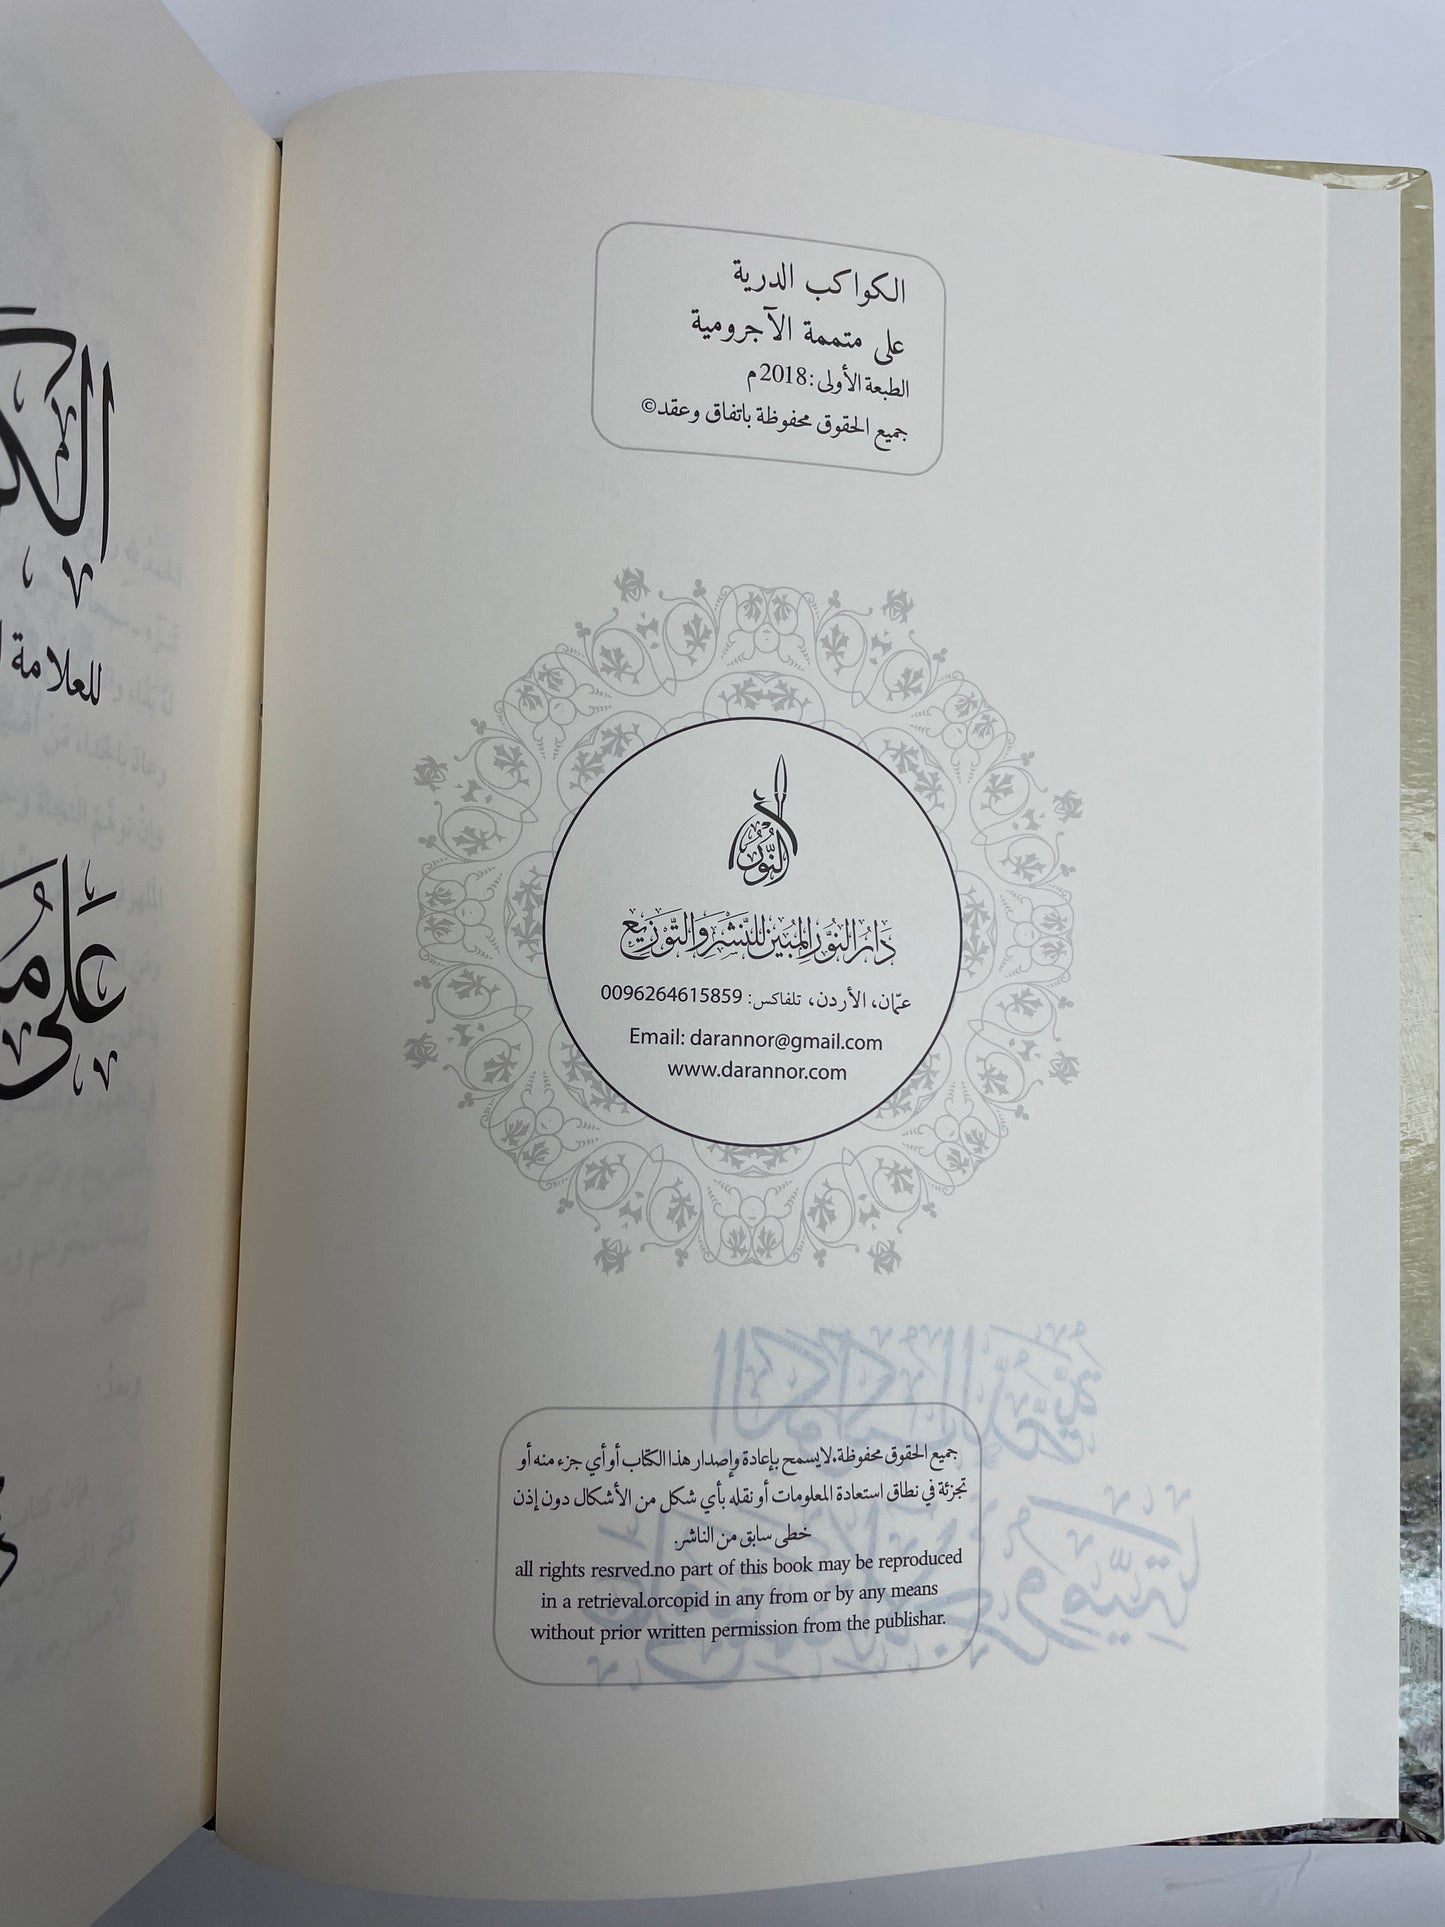 الكواكب الدرية
على متممة الآجرومية
الطبعة الأولى: 2018م
جميع الحقوق محفوظة باتفاق وعقد©
النُّور
دَارُ النُّورِ المُبِين لِلنَّشْرِ وَالتَّوْزِيع
عمّان، الأردن، تلفاكس: 0096264615859
Email: darannor@gmail.com
www.darannor.com
جميع الحقوق محفوظة. لايسمح بإعادة وإصدار هذا الكتاب أو أي جزء منه أو
تجزئة في نطاق استعادة المعلومات أو نقله بأي شكل من الأشكال دون إذن
خطى سابق من الناشر.
all rights resrved.no part of this book may be reproduced
in a retrieval.orcopid in any from or by any means
without prior written permission from the publishar.
للعلامة